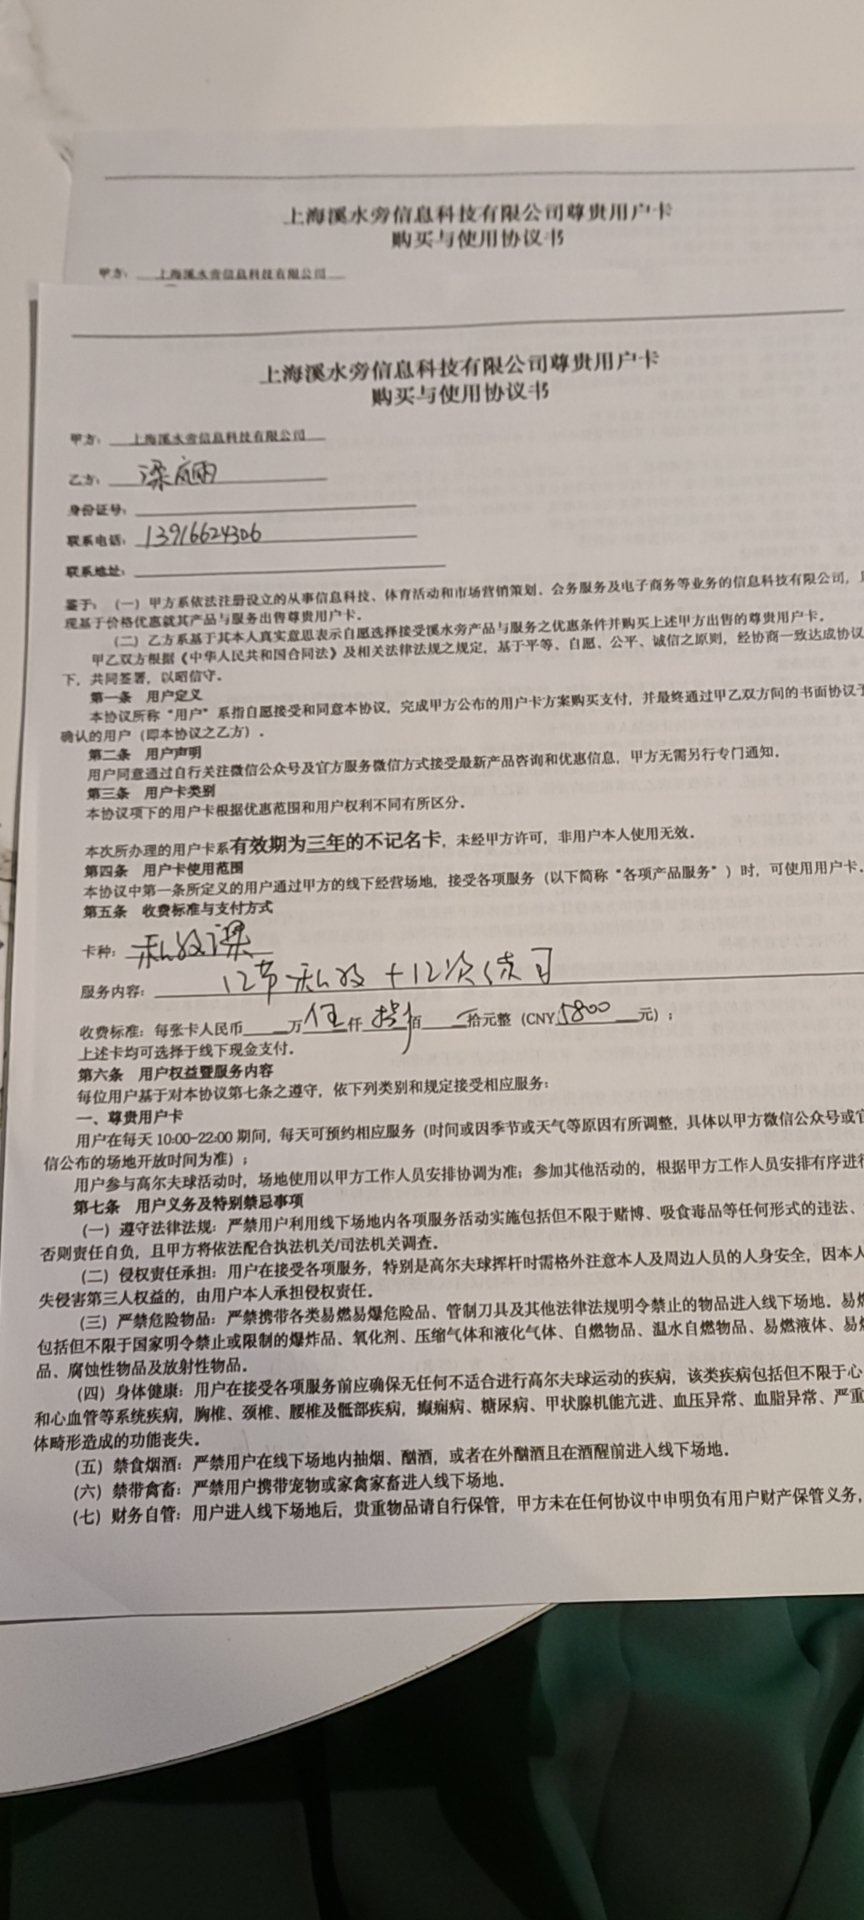 上海溪水旁信息科技有限公司尊贵用户卡
购买与使用协议书
甲方：上海溪水旁信息科技有限公司
上海溪水旁信息科技有限公司尊贵用户卡
购买与使用协议书
甲方：上海溪水旁信息科技有限公司
乙方：梁庭雨
身份证号：
联系电话：13916624306
联系地址：
鉴于：（一）甲方系依法注册设立的从事信息科技、体育活动和市场营销策划、会务服务及电子商务等业务的信息科技有限公司，
现基于价格优惠就其产品与服务出售尊贵用户卡。
（二）乙方系基于其本人真实意思表示自愿选择接受溪水旁产品与服务之优惠条件并购买上述甲方出售的尊贵用户卡。
甲乙双方根据《中华人民共和国合同法》及相关法律法规之规定，基于平等、自愿、公平、诚信之原则，经协商一致达成协议
下，共同签署，以昭信守。
第一条 用户定义
本协议所称“用户”系指自愿接受和同意本协议，完成甲方公布的用户卡方案购买支付，并最终通过甲乙双方间的书面协议予
确认的用户（即本协议之乙方）。
第二条 用户声明
用户同意通过自行关注微信公众号及官方服务微信方式接受最新产品咨询和优惠信息，甲方无需另行专门通知。
第三条 用户卡类别
本协议项下的用户卡根据优惠范围和用户权利不同有所区分。
本次所办理的用户卡系有效期为三年的不记名卡，未经甲方许可，非用户本人使用无效。
第四条 用户卡使用范围
本协议中第一条所定义的用户通过甲方的线下经营场地，接受各项服务（以下简称“各项产品服务”）时，可使用用户卡。
第五条 收费标准与支付方式
卡种：私教课
服务内容：12节私教+12次练习
收费标准：每张卡人民币 万 伍 仟 捌 佰 拾元整（CNY 5800 元）；
上述卡均可选择于线下现金支付。
第六条 用户权益暨服务内容
每位用户基于对本协议第七条之遵守，依下列类别和规定接受相应服务：
一、尊贵用户卡
用户在每天 10:00-22:00 期间，每天可预约相应服务（时间或因季节或天气等原因有所调整，具体以甲方微信公众号或官
信公布的场地开放时间为准）；
用户参与高尔夫球活动时，场地使用以甲方工作人员安排协调为准；参加其他活动的，根据甲方工作人员安排有序进行
第七条 用户义务及特别禁忌事项
（一）遵守法律法规：严禁用户利用线下场地内各项服务活动实施包括但不限于赌博、吸食毒品等任何形式的违法、
否则责任自负，且甲方将依法配合执法机关/司法机关调查。
（二）侵权责任承担：用户在接受各项服务，特别是高尔夫球挥杆时需格外注意本人及周边人员的人身安全，因本人
失侵害第三人权益的，由用户本人承担侵权责任。
（三）严禁危险物品：严禁携带各类易燃易爆危险品、管制刀具及其他法律法规明令禁止的物品进入线下场地。易燃
包括但不限于国家明令禁止或限制的爆炸品、氧化剂、压缩气体和液化气体、自燃物品、温水自燃物品、易燃液体、易燃
品、腐蚀性物品及放射性物品。
（四）身体健康：用户在接受各项服务前应确保无任何不适合进行高尔夫球运动的疾病，该类疾病包括但不限于心
和心血管等系统疾病，胸椎、颈椎、腰椎及骶部疾病，癫痫病、糖尿病、甲状腺机能亢进、血压异常、血脂异常、严重
体畸形造成的功能丧失。
（五）禁食烟酒：严禁用户在线下场地内抽烟、酗酒，或者在外酗酒且在酒醒前进入线下场地。
（六）禁带禽畜：严禁用户携带宠物或家禽家畜进入线下场地。
（七）财务自管：用户进入线下场地后，贵重物品请自行保管，甲方未在任何协议中申明负有用户财产保管义务，